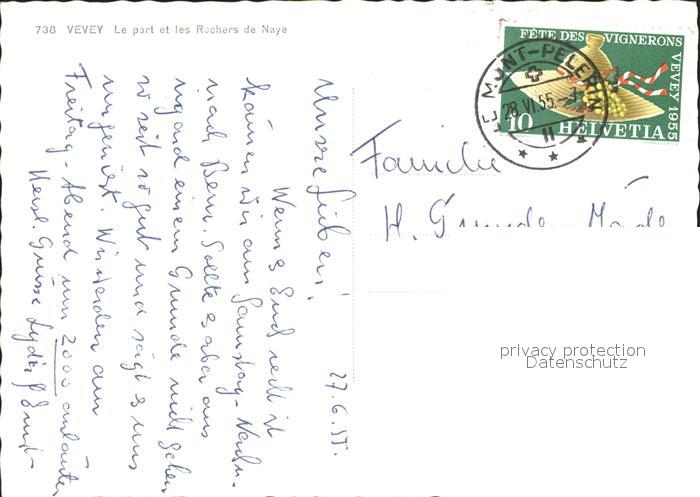 738 VEVEY Le port et les Rochers de Naye
FÊTE DES VIGNERONS
VEVEY 1955
10 HELVETIA
MONT-PELERIN
28.VI.55.
Familie
H.
privacy protection
Datenschutz
27.6.55.
Unsre Lieben!
Wenn's Euch recht ist
kommen wir am Samstag-Nachm.
nach Bern. Sollte es aber aus
irgend einem Grunde nicht gehen
so seit so gut und sagt es uns
ungeniert. Wir werden am
Freitag-Abend um 2000 anläuten
Herzl. Grüsse